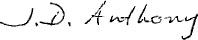 J.D. Anthony